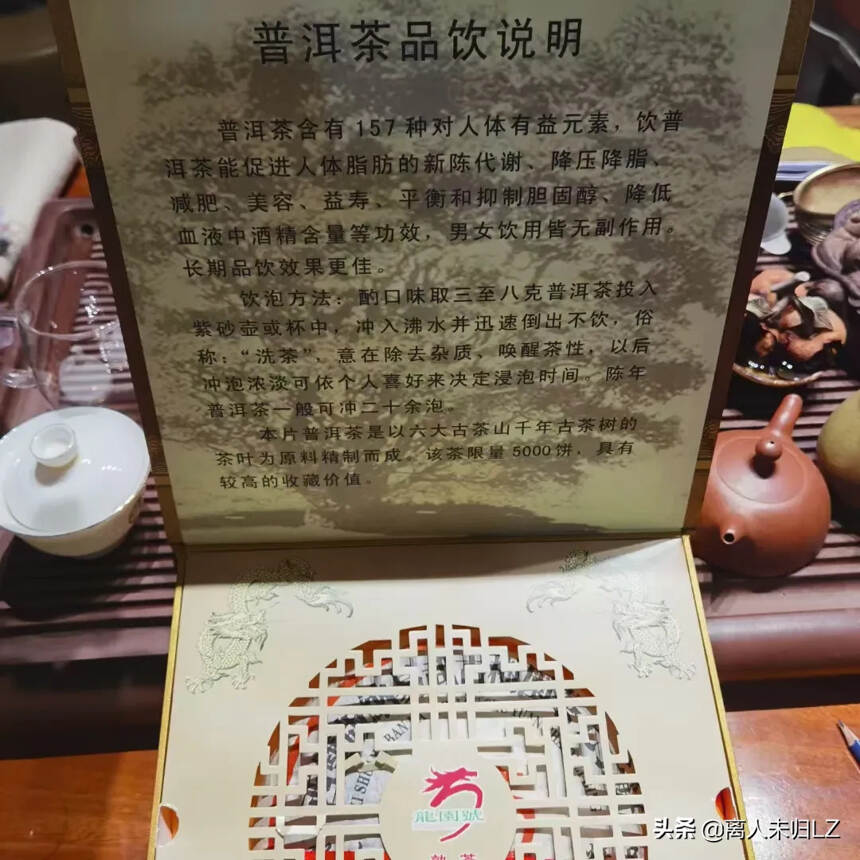 普洱茶品饮说明
普洱茶含有157种对人体有益元素，饮普
洱茶能促进人体脂肪的新陈代谢、降压降脂、
减肥、美容、益寿、平衡和抑制胆固醇、降低
血液中酒精含量等功效，男女饮用皆无副作用。
长期品饮效果更佳。
饮泡方法：酌口味取三至八克普洱茶投入
紫砂壶或杯中，冲入沸水并迅速倒出不饮，俗
称：“洗茶”，意在除去杂质、唤醒茶性，以后
冲泡浓淡可依个人喜好来决定浸泡时间。陈年
普洱茶一般可冲二十余泡。
本片普洱茶是以六大古茶山千年古茶树的
茶叶为原料精制而成。该茶限量5000饼，具有
较高的收藏价值。
龍園號
熟茶
头条 @离人未归LZ